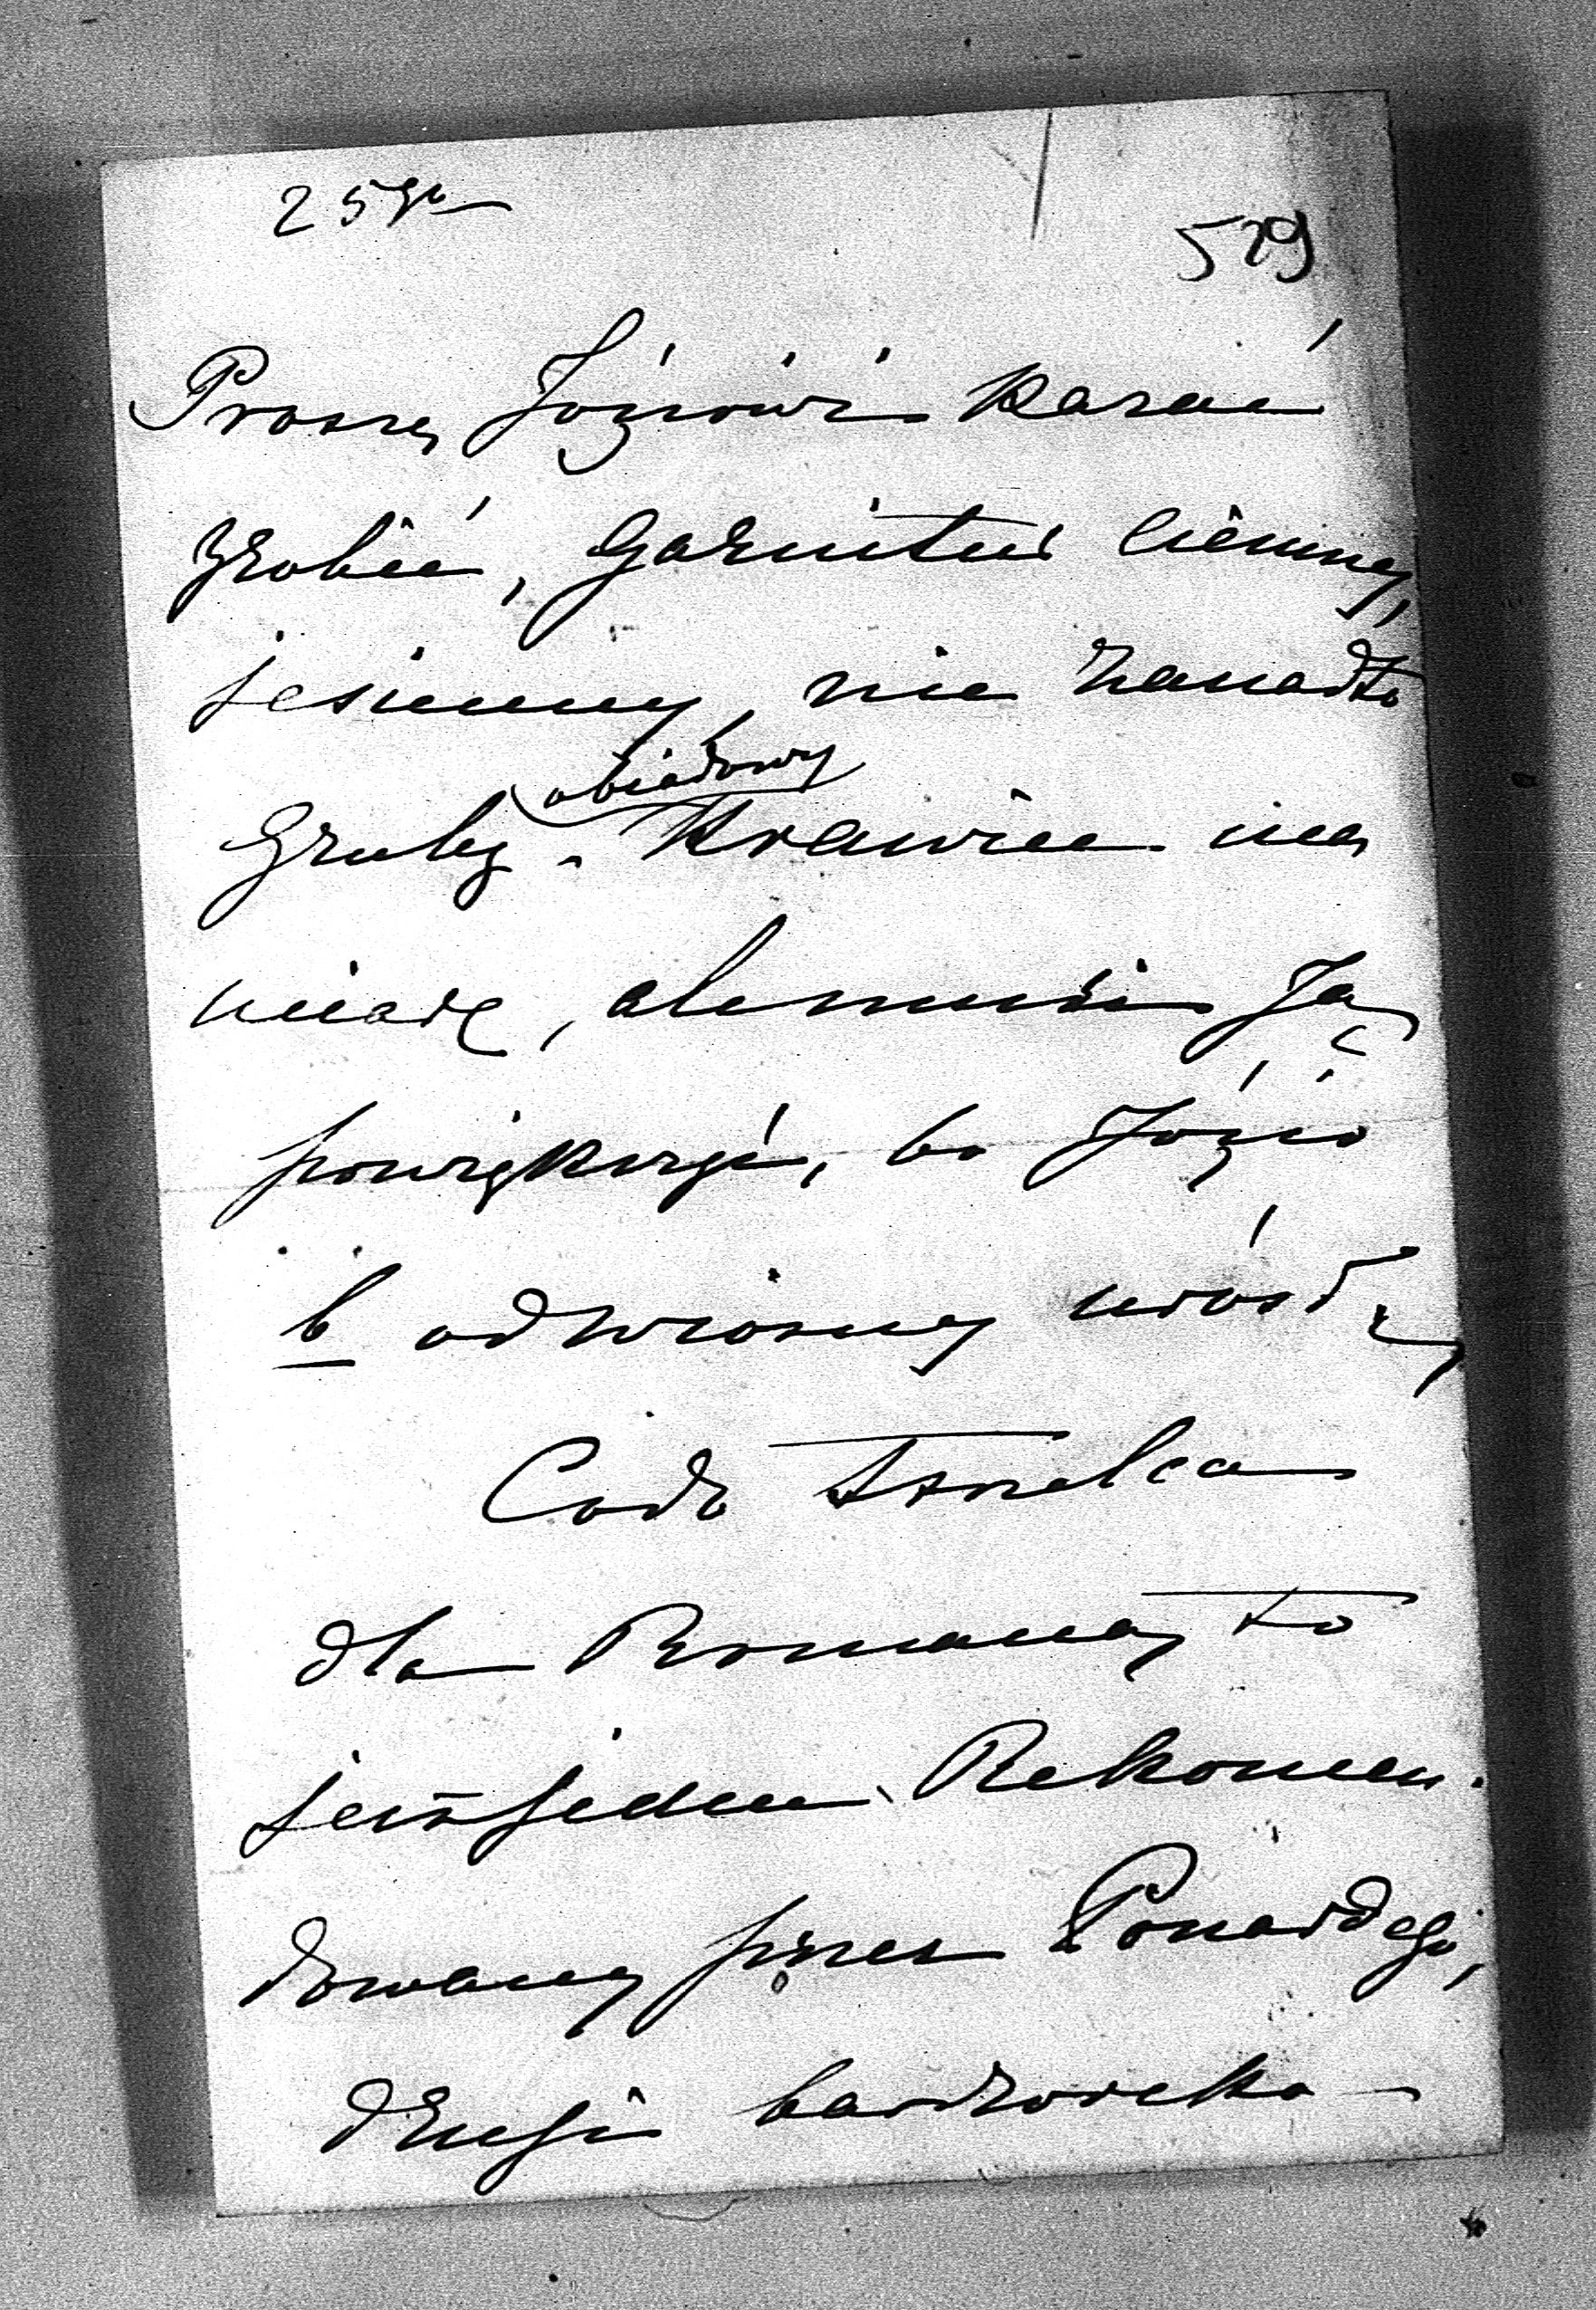 25go
529
Proszę Józiowi kazać
zrobić, garnitur ciemny,
jesienny, nie zanadto
gruby. (obiadowy) Krawiec ma
miarę, ale musi ją
powiększyć, bo Józio
b od wiosny urósł,
Codo strzelca
dla Romana, to
jest jeden, Rekomen-
dowany przez Ponardego,
drugi bardzo reko-